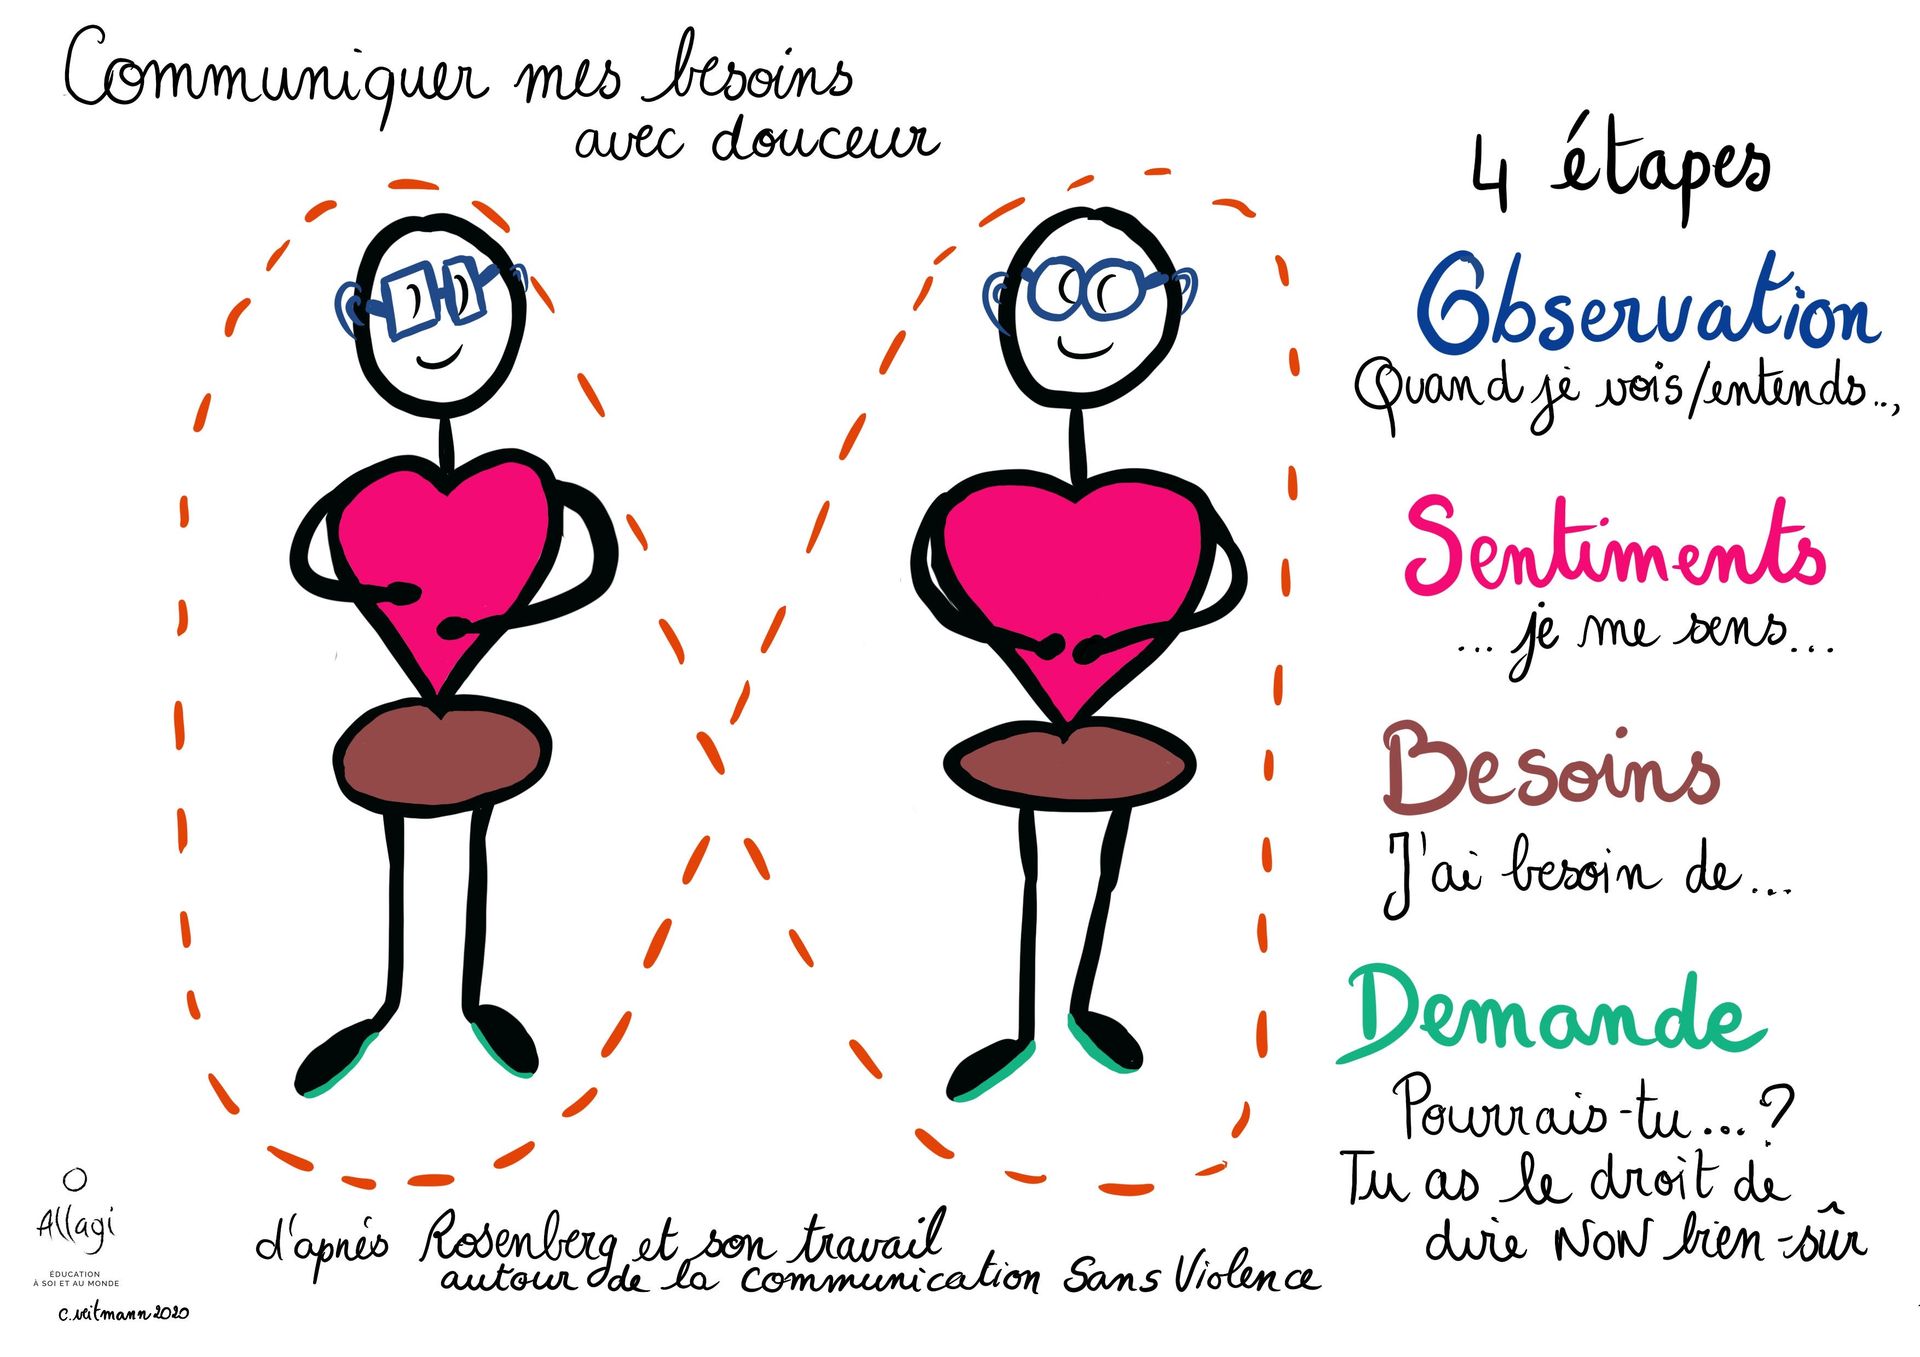 Communiquer mes besoins
avec douceur
4 étapes
Observation
Quand je vois/entends...,
Sentiments
... je me sens...
Besoins
J'ai besoin de...
Demande
Pourrais-tu...?
Tu as le droit de
dire NON bien-sûr
d'après Rosenberg et son travail
autour de la communication Sans Violence
Allagi
ÉDUCATION
À SOI ET AU MONDE
c.veitmann 2020